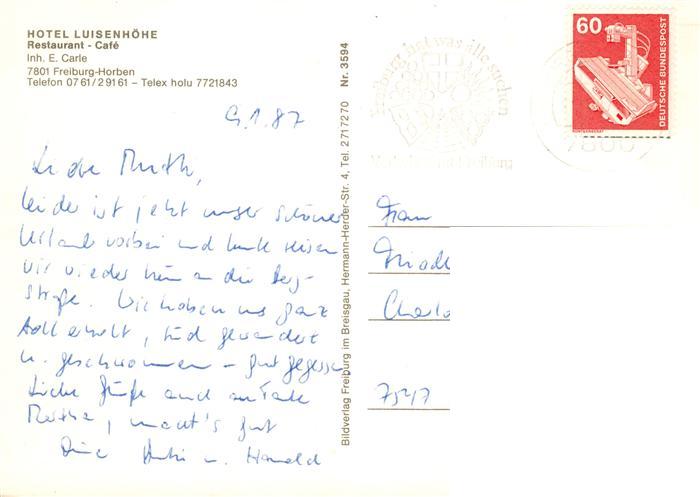 HOTEL LUISENHÖHE
Restaurant - Café
Inh. E. Carle
7801 Freiburg-Horben
Telefon 0761/29161 – Telex holu 7721843
9.1.87
Liebe
leider ist jetzt unser schöner
Urlaub vorbei und heute reisen
wir wieder heim an die Berg-
straße. Wir haben uns ganz
toll erholt, sind gewandert
u. geschwommen – gut gegessen
Liebe Grüße auch an Tante
Martha, macht's gut
Eure u. Harald
Bildverlag Freiburg im Breisgau, Hermann-Herder-Str. 4, Tel. 2717270 Nr. 3594
Freiburg hat was alle suchen
60
DEUTSCHE BUNDESPOST
RÖNTGENGERÄT
7800
Frau
7517